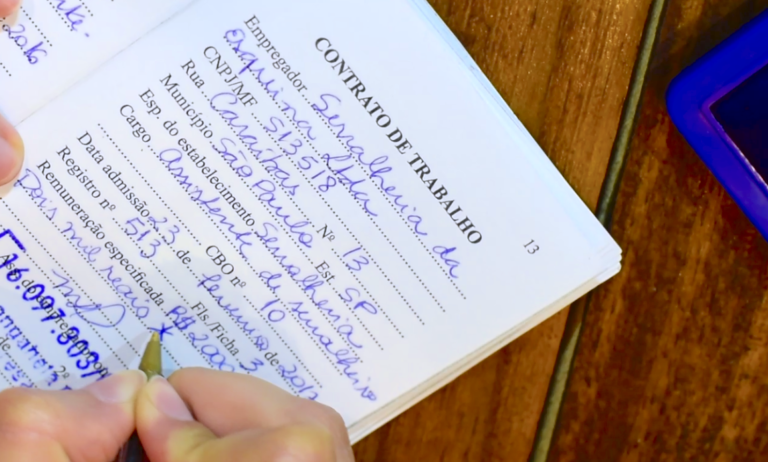 2016
13
CONTRATO DE TRABALHO
Empregador Serralheria da
Esquina Ltda
CNPJ/MF 513518
Rua Caraíbas Nº 13
Município São Paulo Est. SP
Esp. do estabelecimento Serralheria
Cargo Assistente de serralheiro
CBO nº 10
Data admissão 23 de fevereiro de
Registro nº 513 Fls./Ficha 3
Remuneração especificada R$ 2000
Dois mil reais
16.097.803